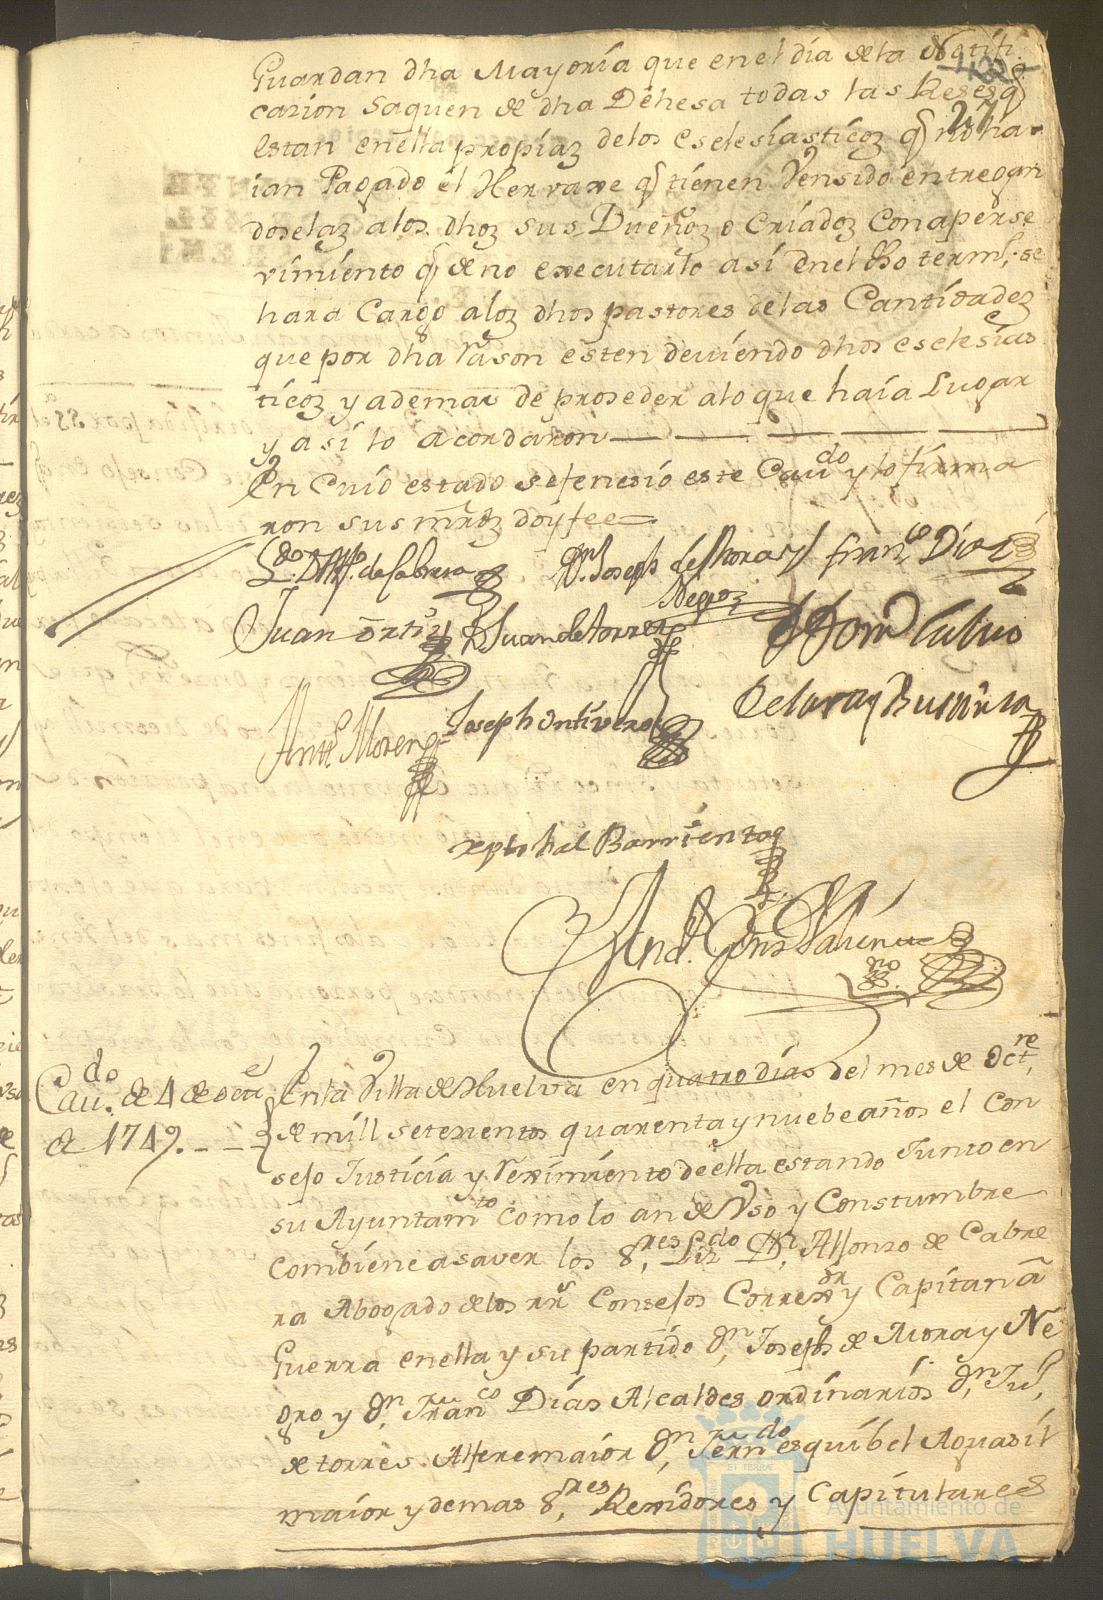 Guardan dha Mayoría que en el día de la Notifi
cazion saquen de dha Dehesa todas las Reses q
estan en ella propiaz de los esclesíasticoz q no ha
ian Pagado el Hervaxe q tienen Vensido entregan
doselaz a los dhoz sus Dueñoz o Criadoz con aperse
vimiento q de no executarlo así en el dho term.º se
hara Cargo a loz dhos pastores de las Cantidadez
que por dha rason esten deviendo dhos esclesías
ticoz y ademas de proseder a lo que haia Lugar
y así lo acordaron
En Cuio estado se fenesió este Caudo y lo firma
ron sus mrdz doy fee
Ldo. D. Alfº. de Cabrera Dn. Joseph de Mora y franco Diaz
Negro
Juan Ortiz D Juan de torres D Domº Calvo
Antº Moreno Joseph Ontivero de Garay
xptobal Barrientos
Andr.
no
27
Caudo. de 4 de octre
de 1749.
En la Villa de Huelva en quatro dias del mes de Octre,
de mill setezientos quarenta y nuebe años el Con
sejo Justicia y Reximiento de ella estando Junto en
su Ayuntamto como lo an de Vso y Constumbre
Combiene a saver los Sres, Lizdo Dn, Alfonzo de Cabre
ra Abogado de los rrs Consejos Correxor y Capitan á
Guerra en ella y su partido Dn, Joseph de Mora y Ne
gro y Dn, Franco Días Alcaldes ordinarios Dn, Jun,
de torres Alferemaior Dn, Ferndo esquibel Aguasil
maior y demas Sres, Rexidores y Capitulares
Ayuntamiento de
HUELVA